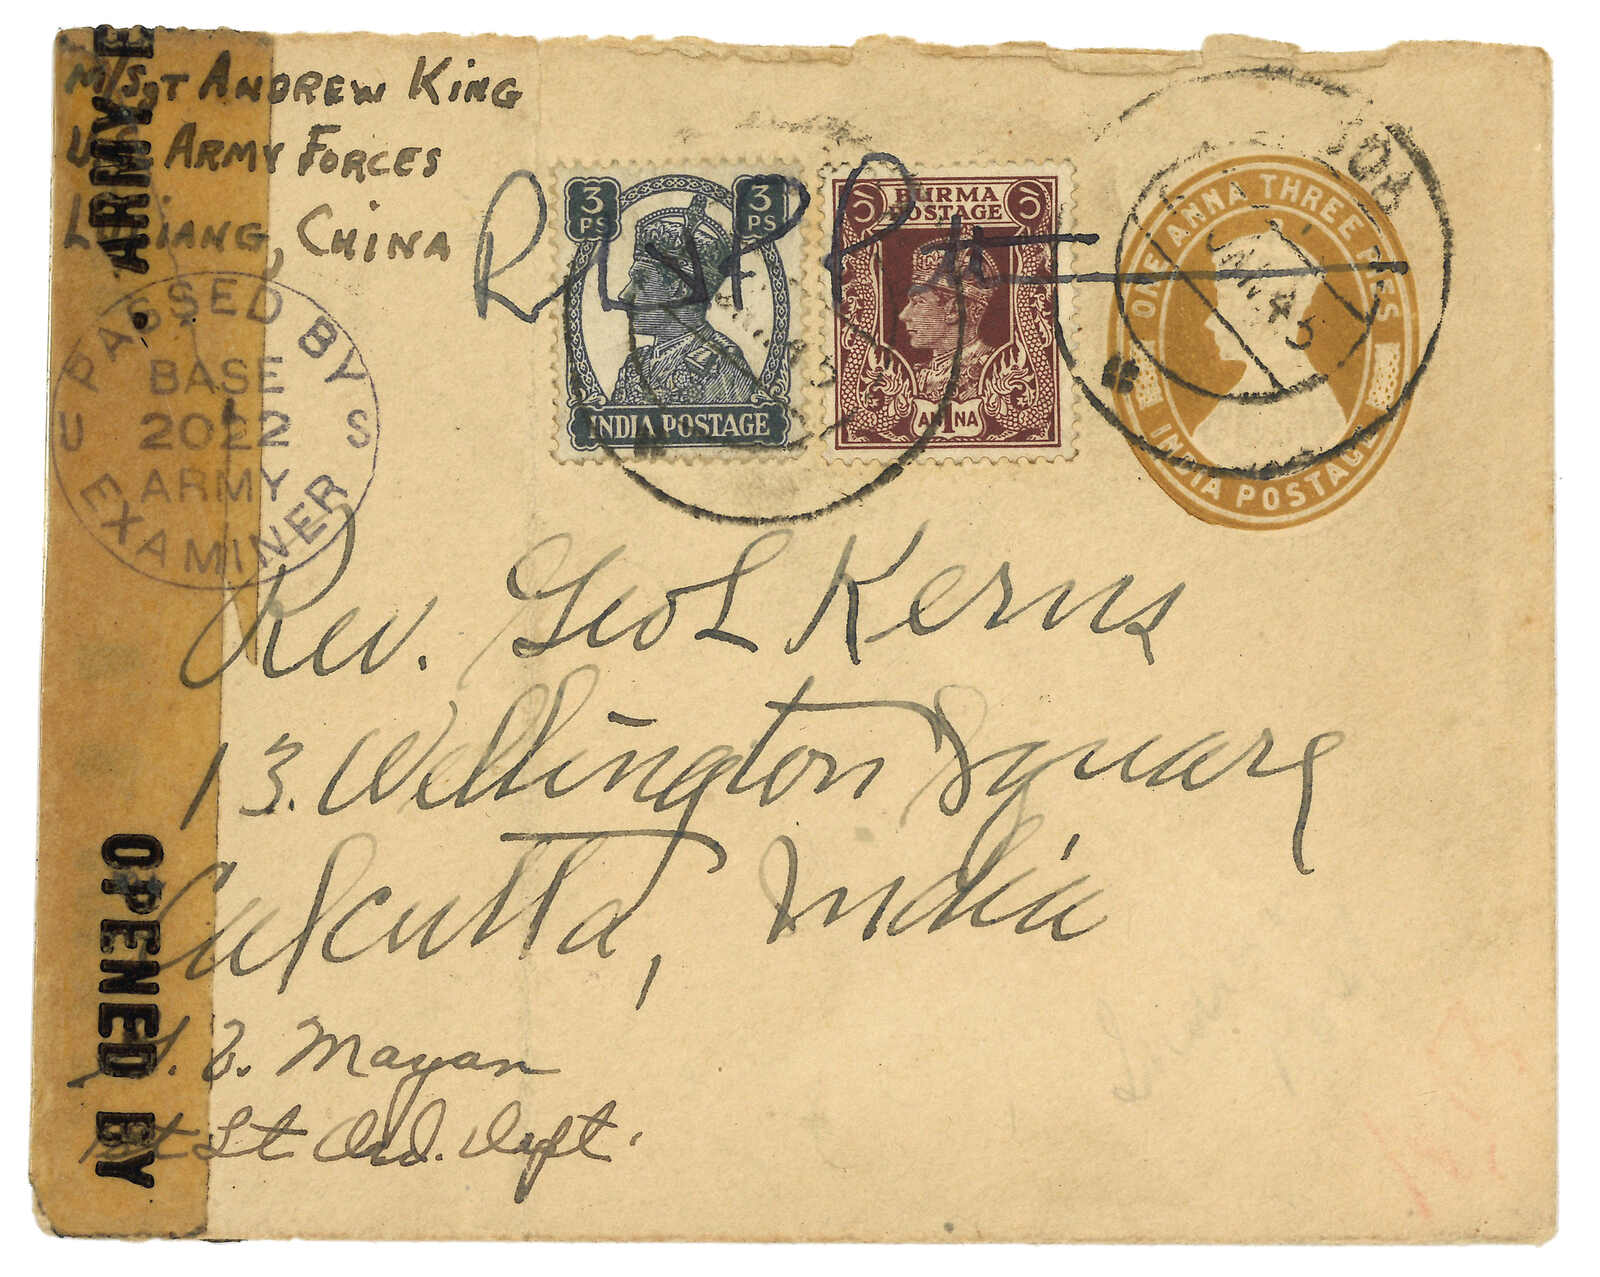 M/Sgt ANDREW KING
U.S. ARMY FORCES
CHINA
ARMY E
OPENED BY
PASSED BY
BASE
2022
ARMY
EXAMINER
U S
3 PS 3 PS
INDIA POSTAGE
BURMA
POSTAGE
ANNA 1
ONE ANNA THREE PIES
INDIA POSTAGE
108
45
Rev. Geo L Kerns
13. Wellington Square
Calcutta, India
Mayan
1st Lt Ord. Dept.